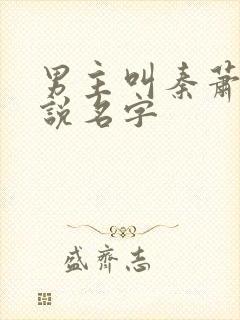 男主叫秦蕭
說名字
盛齊志